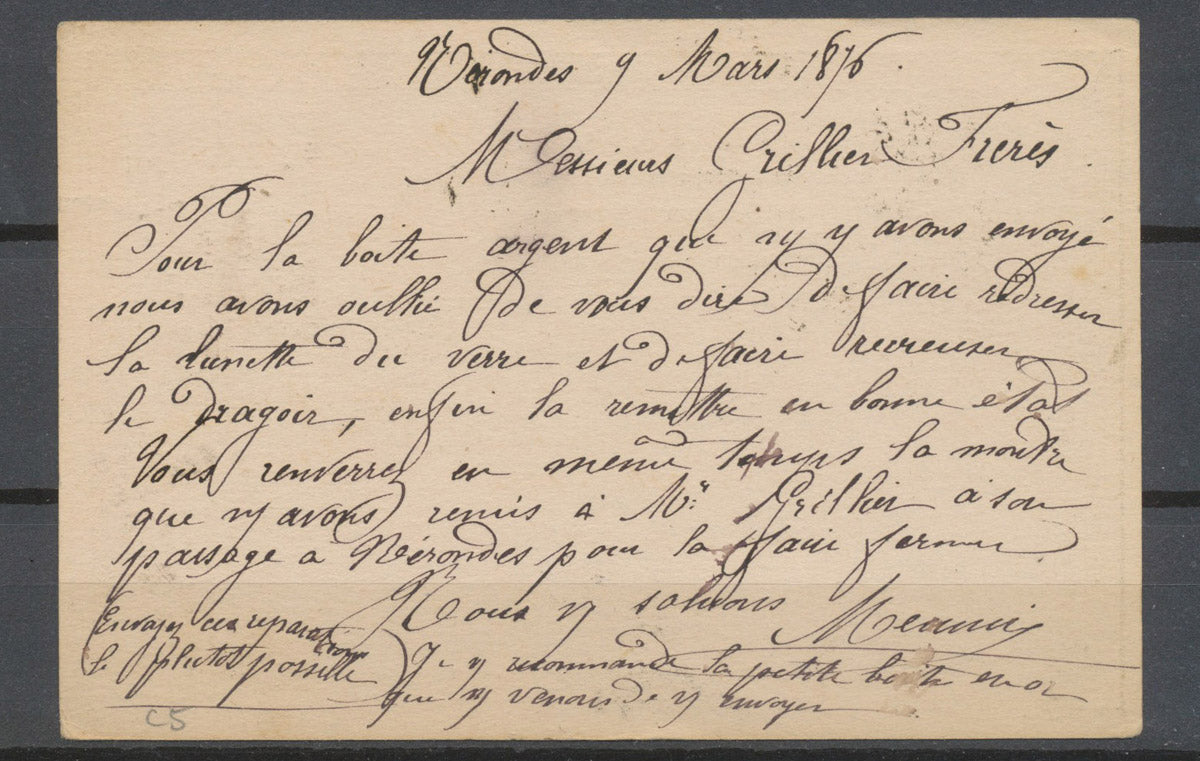 Nérondes 9 Mars 1876.
Messieurs Grillier Frerès.
Pour la boite argent que ny y avons envoyé
nous avons oublié de vous dire de faire redresser
la lunette du verre et de faire recreuser
le dragoir, enfin la remettre en bonne état
Vous renverrez en même temps la montre
que ny avons remis à Mr. Grillier à son
passage à Nérondes pour la faire fermer
Nous y saluons
Envoyez ces reparations
le plutot possible
Je y recommande la petite boite en or
que ny venons de y envoyer
C5